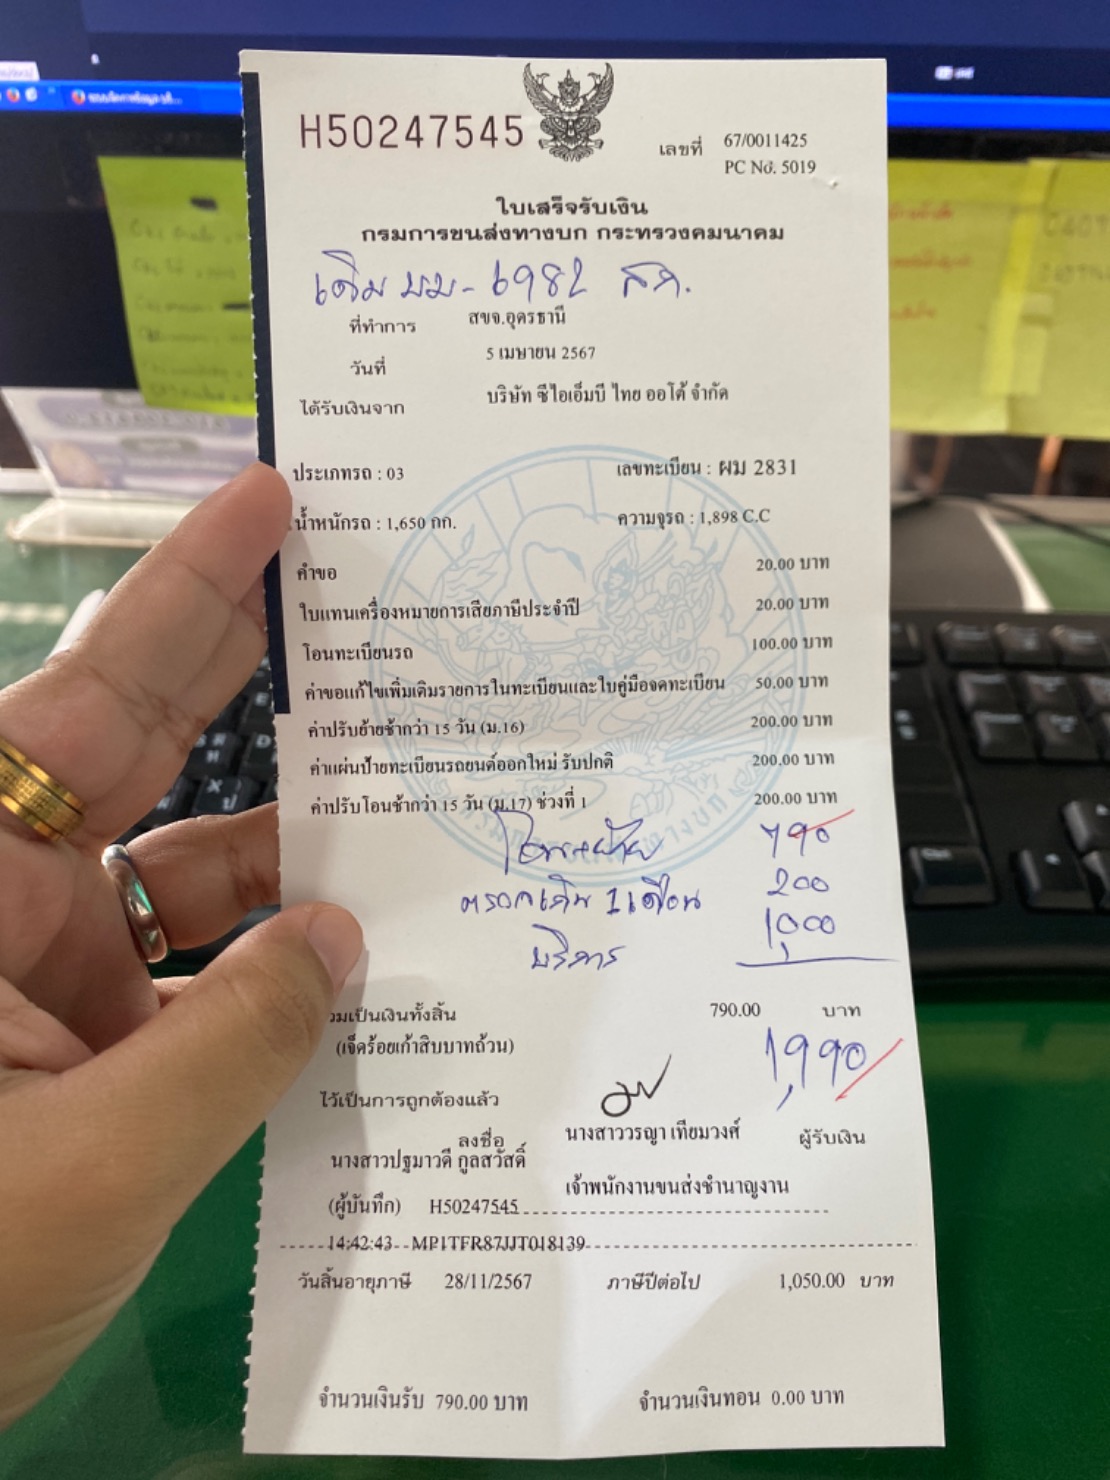 H50247545
เลขที่ 67/0011425
PC No. 5019
ใบเสร็จรับเงิน
กรมการขนส่งทางบก กระทรวงคมนาคม
เดิม บม-6982 สก.
ที่ทำการ สขจ.อุดรธานี
วันที่ 5 เมษายน 2567
ได้รับเงินจาก บริษัท ซีไอเอ็มบี ไทย ออโต้ จำกัด
ประเภทรถ : 03 เลขทะเบียน : ผม 2831
น้ำหนักรถ : 1,650 กก. ความจุรถ : 1,898 C.C
คำขอ 20.00 บาท
ใบแทนเครื่องหมายการเสียภาษีประจำปี 20.00 บาท
โอนทะเบียนรถ 100.00 บาท
ค่าขอแก้ไขเพิ่มเติมรายการในทะเบียนและใบคู่มือจดทะเบียน 50.00 บาท
ค่าปรับย้ายช้ากว่า 15 วัน (ม.16) 200.00 บาท
ค่าแผ่นป้ายทะเบียนรถยนต์ออกใหม่ รับปกติ 200.00 บาท
ค่าปรับโอนช้ากว่า 15 วัน (ม.17) ช่วงที่ 1 200.00 บาท
790
ตรวจเดิม 1 เดือน 200
บริการ 1,000
วมเป็นเงินทั้งสิ้น 790.00 บาท
(เจ็ดร้อยเก้าสิบบาทถ้วน)
1,990
ไว้เป็นการถูกต้องแล้ว
ลงชื่อ นางสาววรญา เทียมวงศ์ ผู้รับเงิน
นางสาวปฐมาวดี กูลสวัสดิ์
เจ้าพนักงานขนส่งชำนาญงาน
(ผู้บันทึก) H50247545
14:42:43 MP1TFR87JJT018139
วันสิ้นอายุภาษี 28/11/2567 ภาษีปีต่อไป 1,050.00 บาท
จำนวนเงินรับ 790.00 บาท จำนวนเงินทอน 0.00 บาท